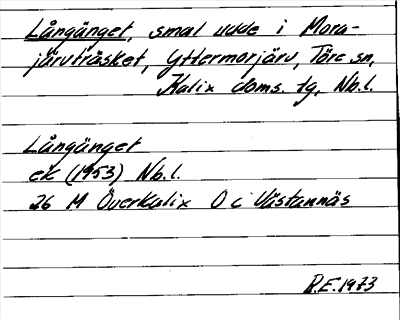 Långänget, smal udde i Mora-
järvträsket, Yttermorjärv, Töre sn,
Kalix doms. tg, Nb.l.
Långänget
ek (1953) Nb.l.
26 M Överkalix O c Västannäs
R.E. 1973